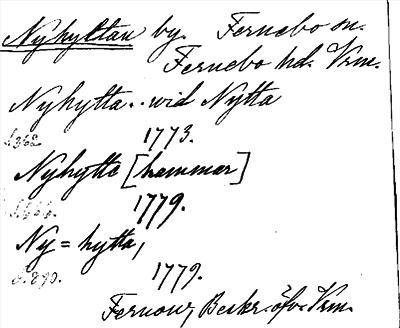 Nyhyttan by. Fernebo sn.
Fernebo hd. Vrm.
Nyhytta.. wid Nytta
s. 362 1773.
Nyhytte [hammar]
s. 1779.
Ny=hytta,
s. 890. 1779.
Fernow, Beskr. öfv. Vrm.